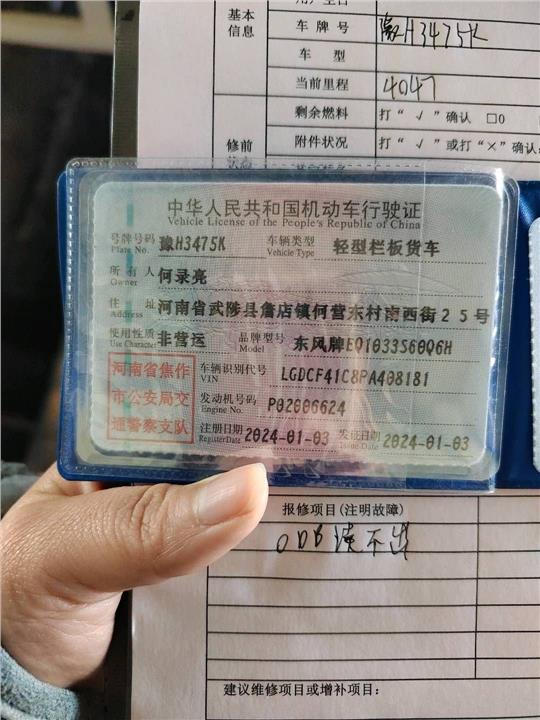 基本
信息
车 牌 号
豫H3475K
车 型
当前里程
4047
修前
剩余燃料
打“ √ ”确认 □0
附件状况
打“ √ ”或打“×”确认:
中华人民共和国机动车行驶证
Vehicle License of the People's Republic of China
号牌号码
Plate No.
豫H3475K
车辆类型
Vehicle Type
轻型栏板货车
所 有 人
Owner
何录亮
住 址
Address
河南省武陟县詹店镇何营东村南西街25号
使用性质
Use Character
非营运
品牌型号
Model
东风牌EQ1033S60Q6H
河南省焦作
市公安局交
通警察支队
车辆识别代号
VIN
LGDCF41C8PA408181
发动机号码
Engine No.
P02006624
注册日期
Register Date
2024-01-03
发证日期
Issue Date
2024-01-03
报修项目(注明故障)
读不出
建议维修项目或增补项目: